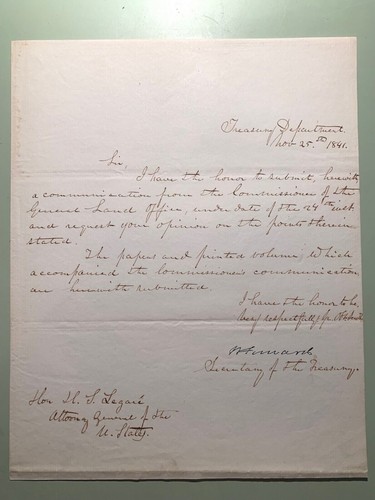 Treasury Department.
Nov 25.th 1841.
Sir,
I have the honor to submit, herewith
a communication from the Commissioner of the
General Land Office, under date of the 24th inst.
and request your opinion on the points therein
stated.
The papers and printed volume, which
accompanied the Commissioner's communication
are herewith submitted.
I have the honor to be,
Very respectfully, Yr Obt
W Forward
Secretary of the Treasury.
Hon H. S. Legaré
Attorney General of the
U. States.